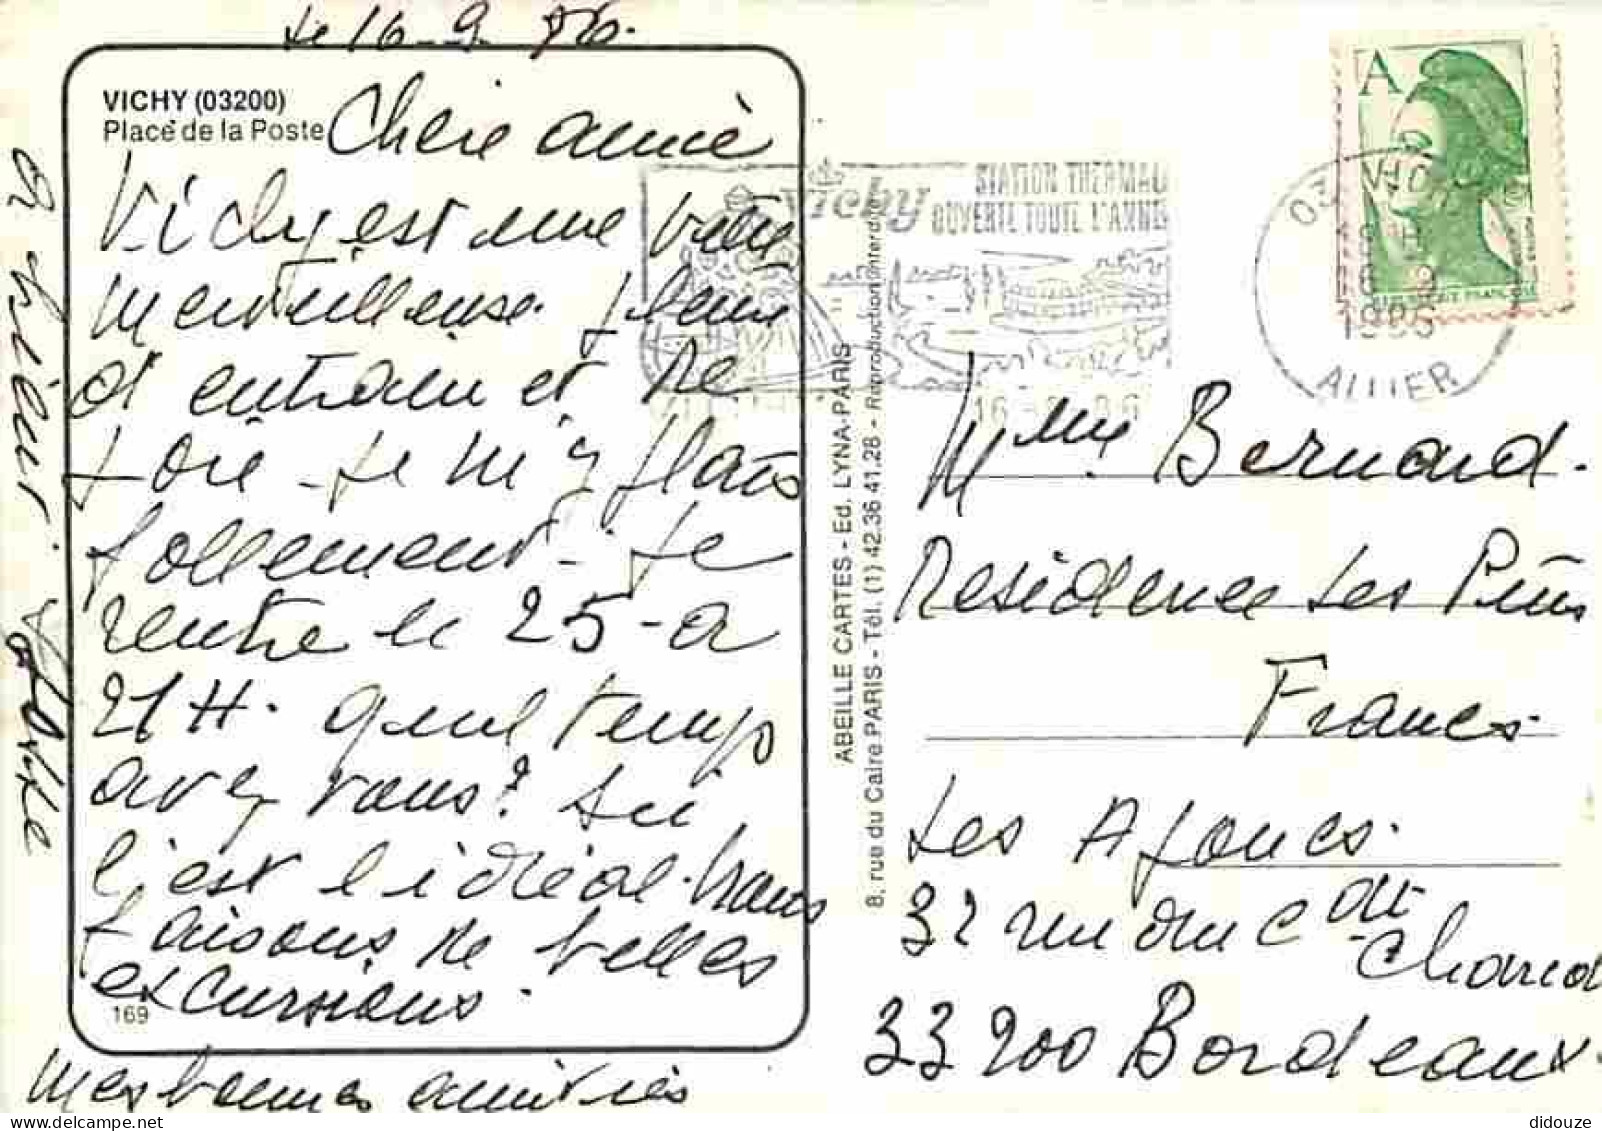 Le 16-9-86.
VICHY (03200)
Place de la Poste
Chère amie
Vichy est une ville
merveilleuse pleine
d'entrain et de
joie - Je m'y plais
follement - Je
rentre le 25 - a
21 H. quel temps
avez vous? Ici
c'est l'idéal. nous
faisons de belles
excursions.
169
Mes bonnes amitiés
ABEILLE CARTES - Ed. LYNA-PARIS
8, rue du Caire PARIS - Tél. (1) 42.36 41.28 - Reproduction interdite
Vichy
STATION THERMALE
OUVERTE TOUTE L'ANNEE
16-9-86
A
1986
ALLIER
Mme Bernard.
Residence Les Pins
Francs
Les Ajoncs.
32 rue du Cdt
Charcot
33200 Bordeaux.
didouze - delcampe.net